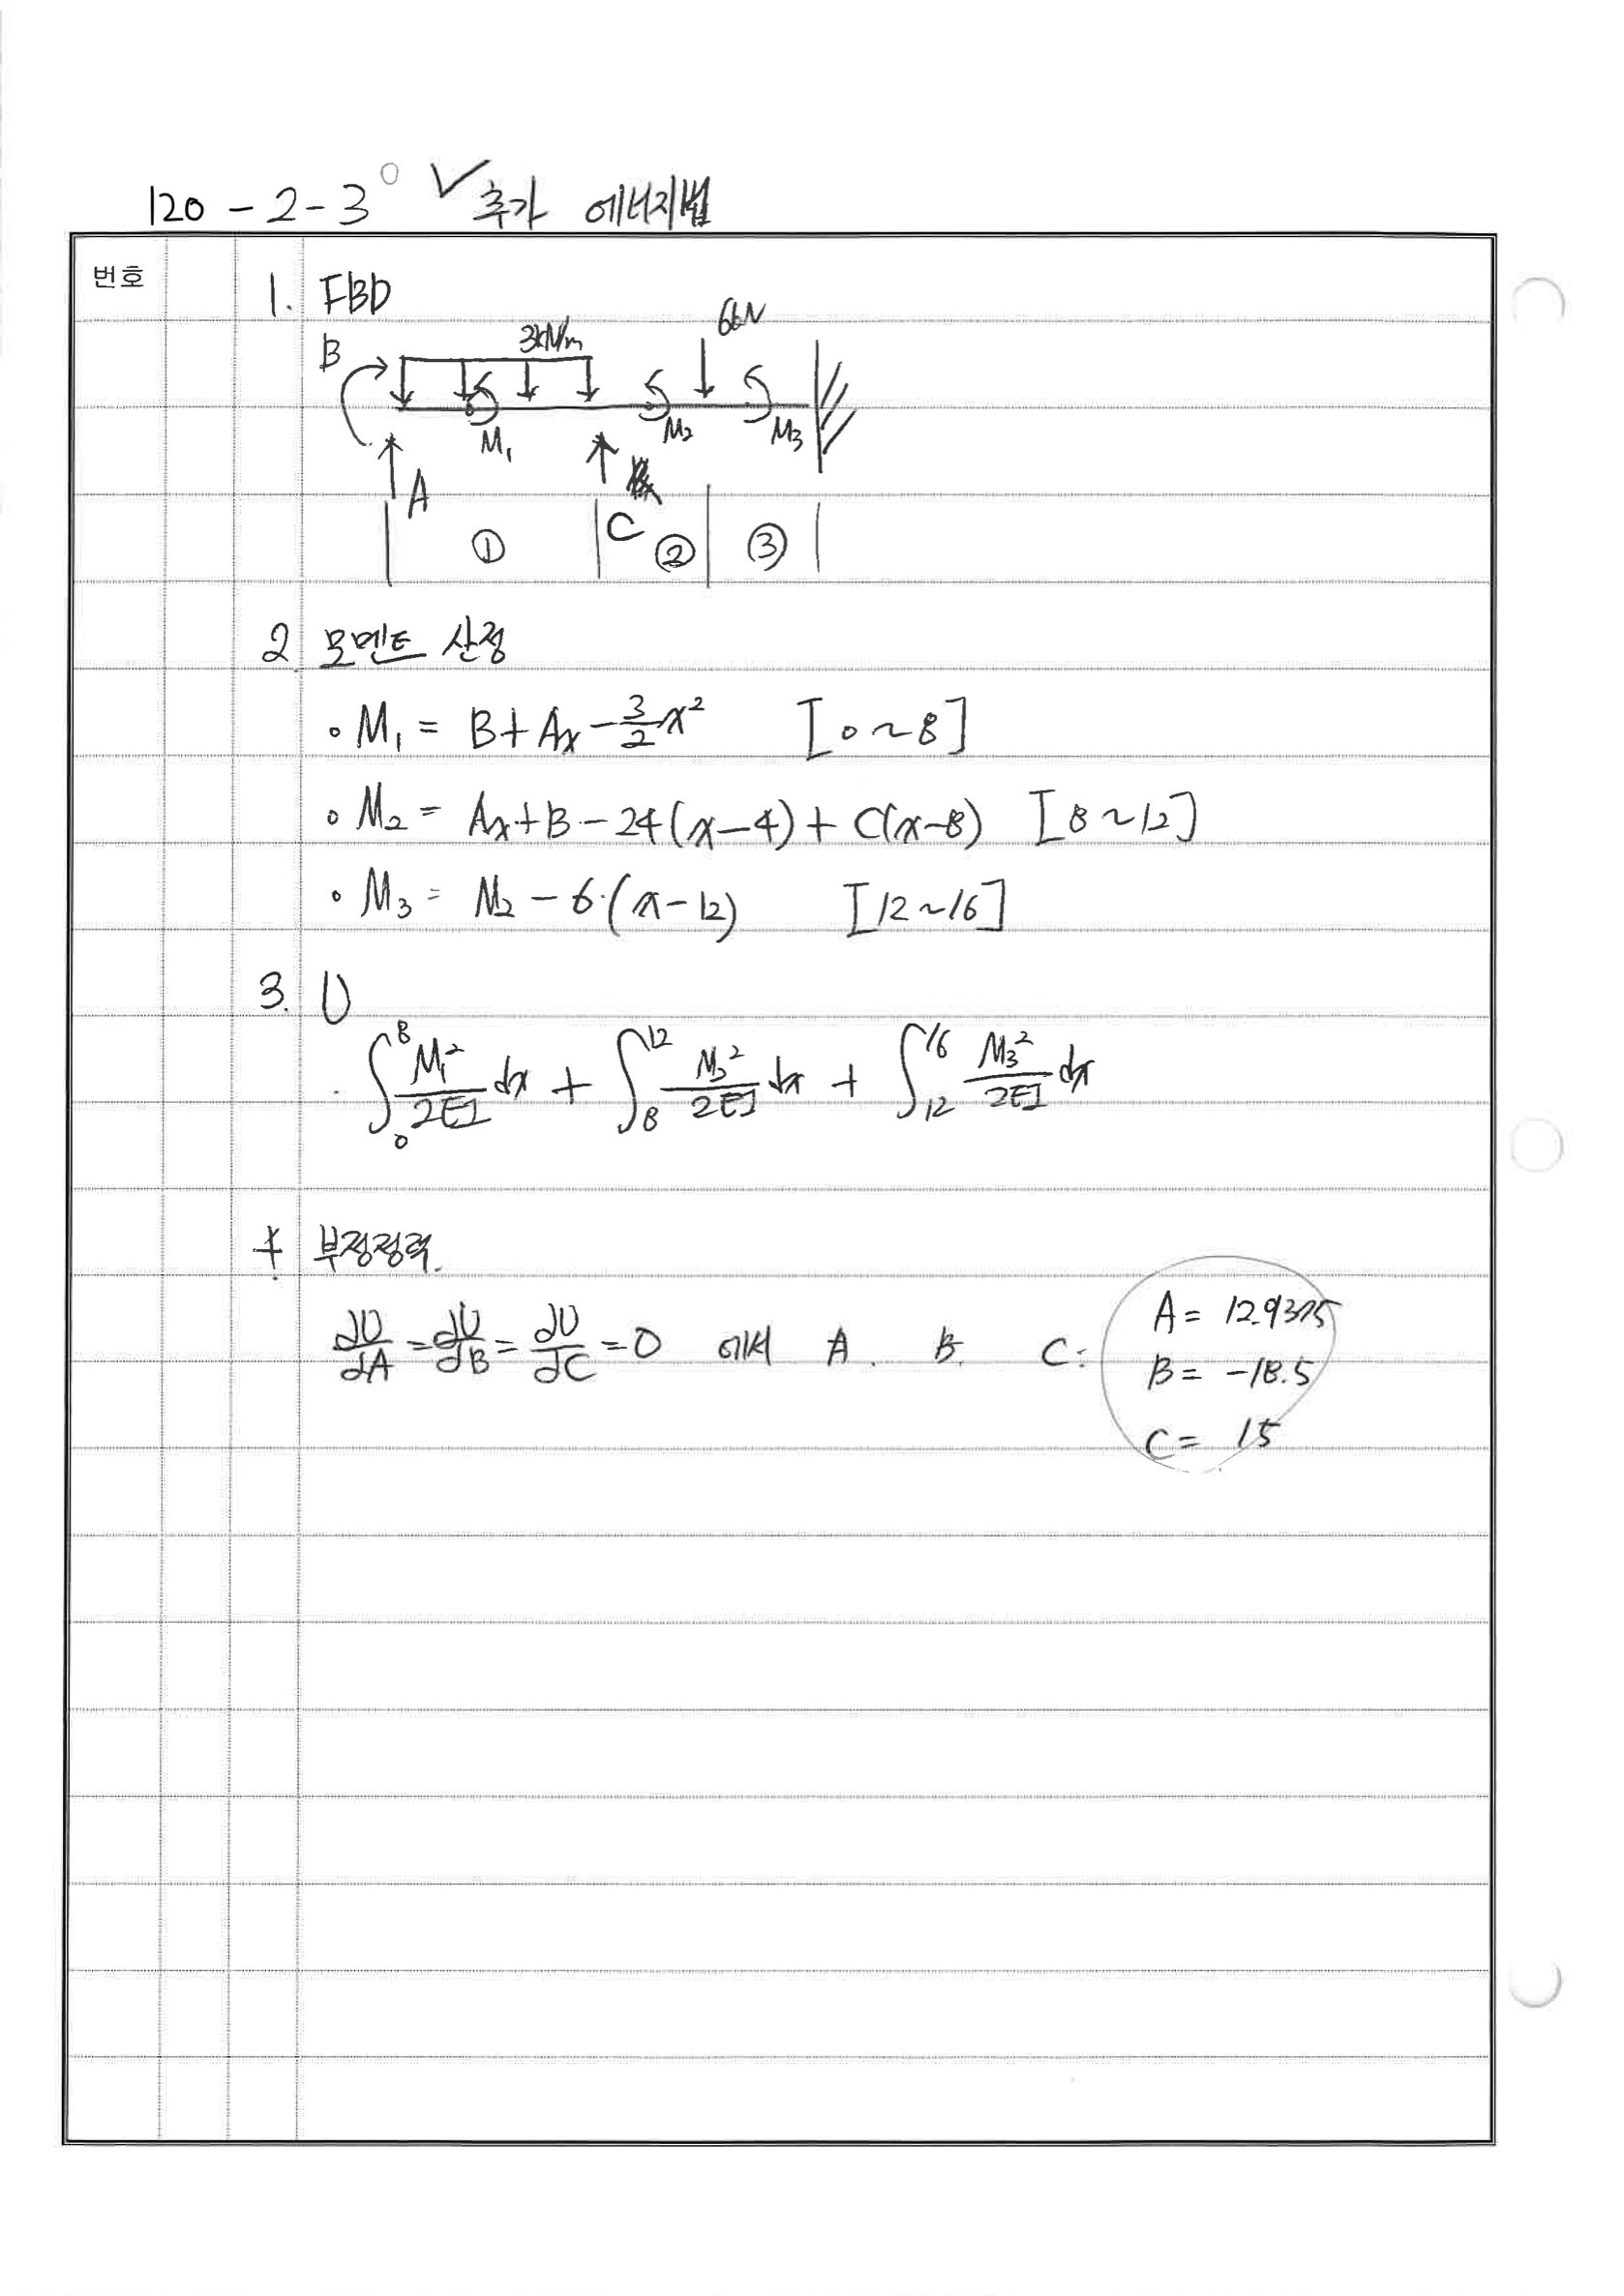 120 - 2 - 3 ○ ✓ 추가 에너지법
번호
1. FBD
B 3kN/m 6kN
M₁ M₂ M₃
A C
① ② ③
2. 모멘트 산정
∘ M₁ = B + Ax - 3/2 x² [0 ~ 8]
∘ M₂ = Ax + B - 24(x-4) + C(x-8) [8 ~ 12]
∘ M₃ = M₂ - 6·(x-12) [12 ~ 16]
3. U
∫₀⁸ M₁²/2EI dx + ∫₈¹² M₂²/2EI dx + ∫₁₂¹⁶ M₃²/2EI dx
4. 부정정력.
∂U/∂A = ∂U/∂B = ∂U/∂C = 0 에서 A. B. C:
A = 12.9375
B = -18.5
C = 15